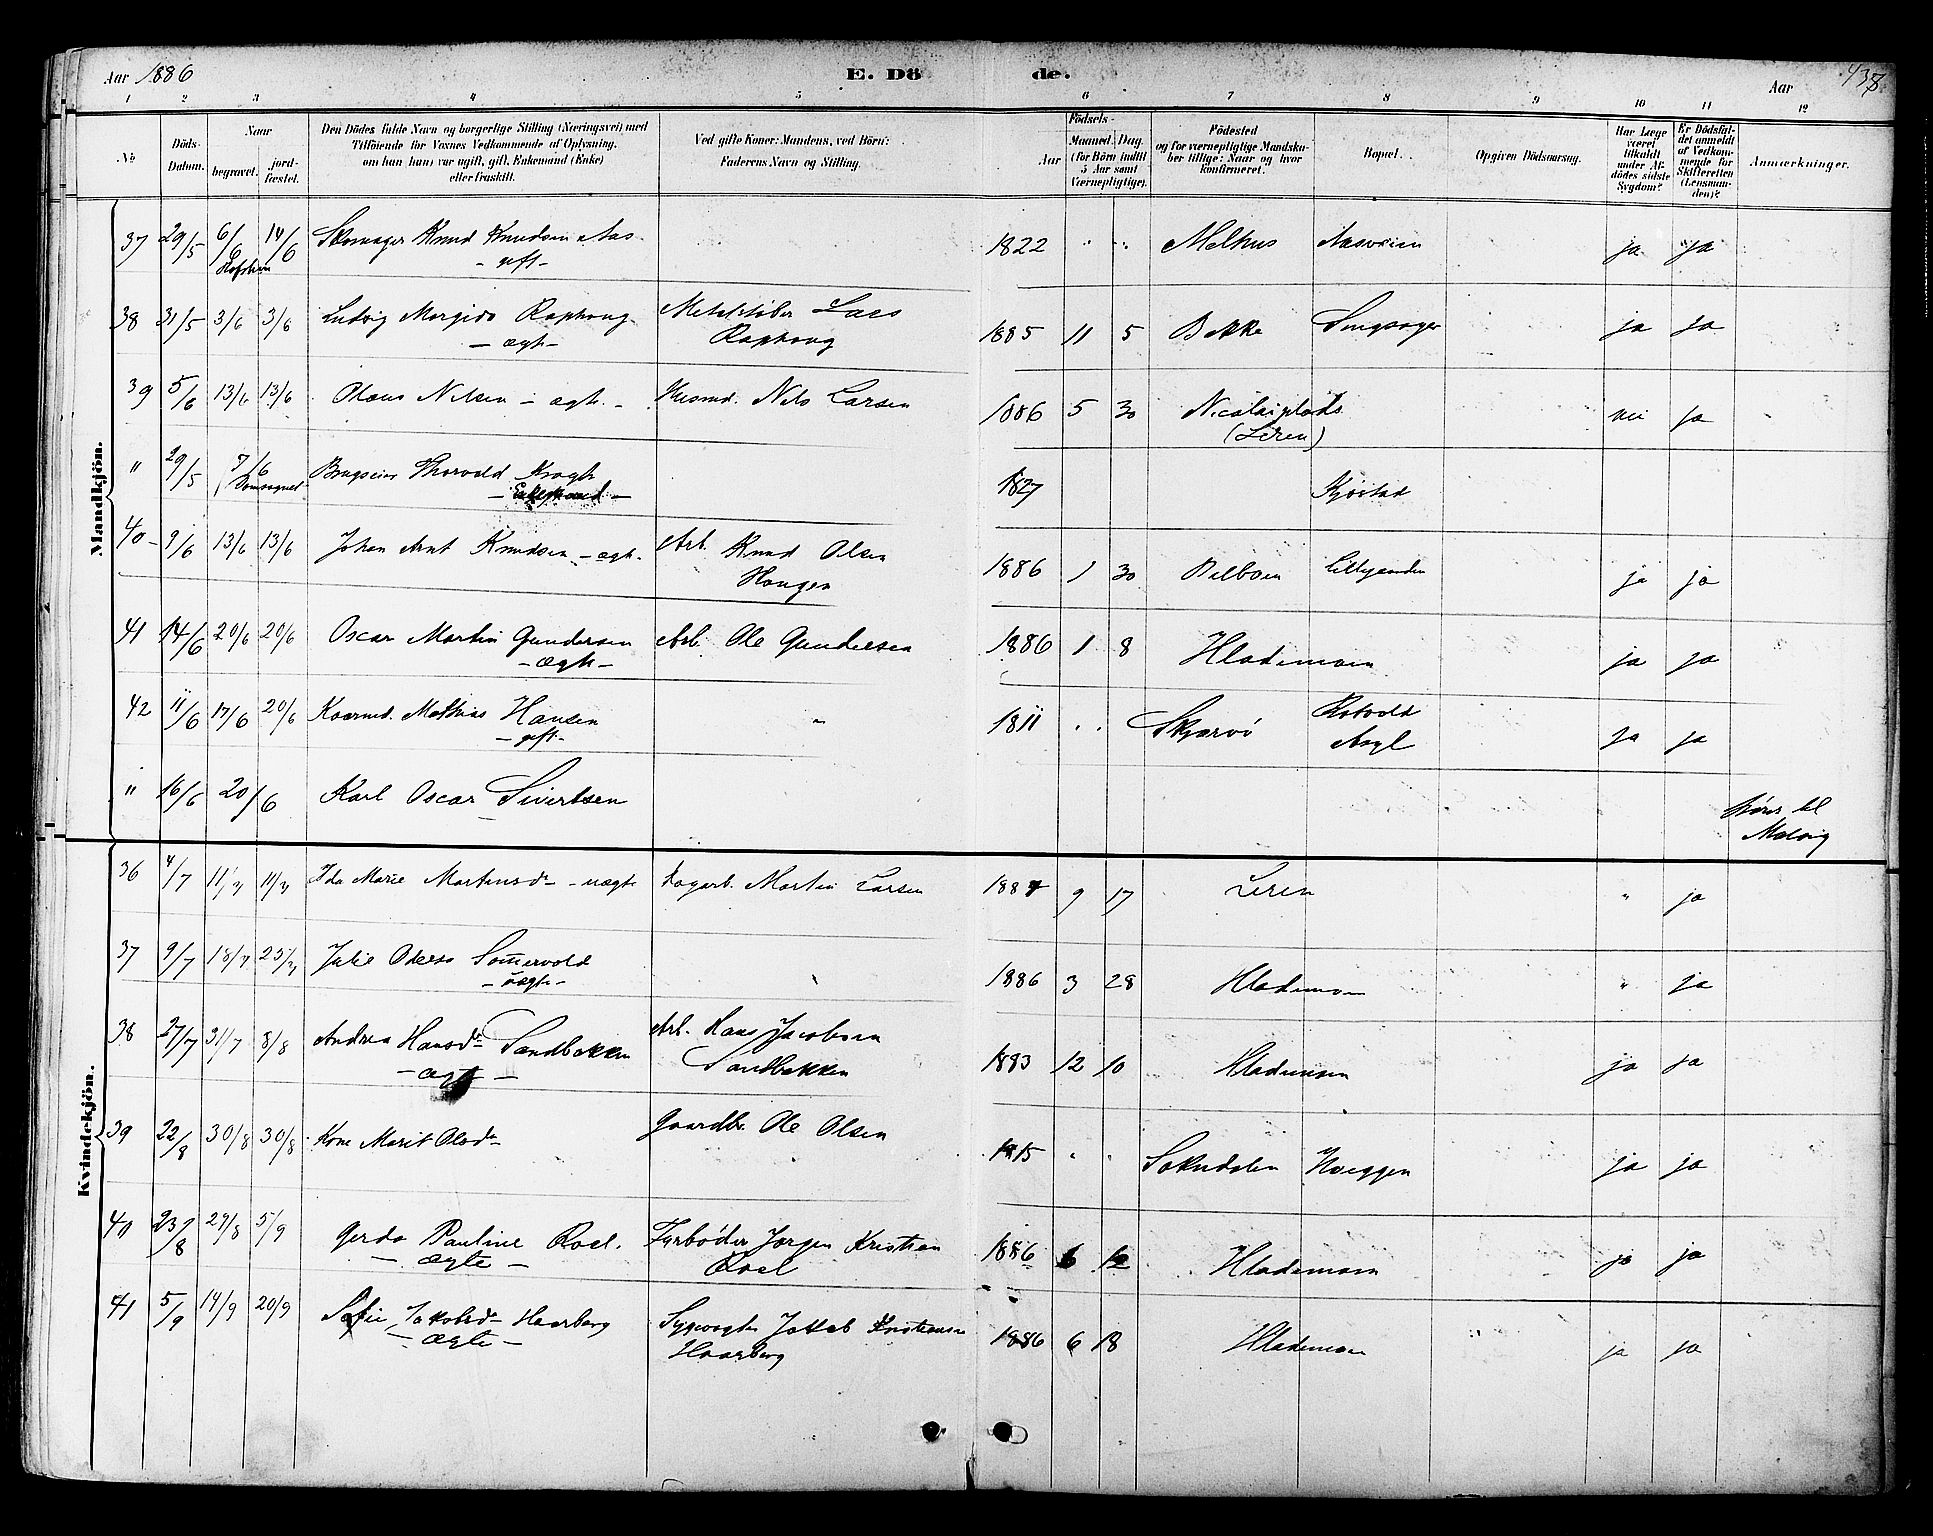 Aar 1886 E. Dö de. Aar 438
1 2 3 4 5 6 7 8 9 10 11 12
No. Döds-Datum. Naar begravet. jordfæstet. Den Dödes fulde Navn og borgerlige Stilling (Næringsvei) med Tilföiende for Voxnes Vedkommende af Oplysning, om han (hun) var ugift, gift, Enkemand (Enke) eller fraskilt. Ved gifte Koner: Mandens, ved Börn: Faderens Navn og Stilling. Födsels- Aar Maaned. Dag. (for Börn indtil 5 Aar samt Værnepligtige). Födested og for værnepligtige Mandskaber tillige: Naar og hvor konfirmeret. Bopæl. Opgiven Dödsaarsag. Har Læge været tilkaldt under Afdödes sidste Sygdom? Er Dödsfaldet anmeldt af Vedkommende for Skifteretten (Lensmanden)? Anmærkninger.
Mandkjön.
37 29/5 6/6 14/6 Skomager Knud Knudsen Aas 1822 " " Melhus Aasveien ja ja
- gift -
38 31/5 3/6 3/6 Ludvig Margido Raphoug Lars 1885 11 5 Bakke Singsager ja ja
- ægte - Raphoug
39 5/6 13/6 13/6 Olaus Nilsen - ægte - Husmd. Nils Larsen 1886 5 30 Nicolaiplads nei ja
(Leren)
" 29/5 7/6 Domsognet Thorvald Krogh 1827
- Enkemand -
40 9/6 13/6 13/6 Johan Arnt Knudsen - ægte - Arb. Knud Olsen 1886 1 30 ja ja
Haugen
41 14/6 20/6 20/6 Oscar Martin Gundersen Arb. Ole Gundersen 1886 1 8 Hlademoen ja ja
- ægte -
42 11/6 17/6 20/6 Mathias Hansen " 1811 " " Skjærvö Rotvold ja ja
- gift - Asyl
" 16/6 20/6 Karl Oscar Sivertsen hörer til
Malvig
Kvindekjön.
36 4/7 11/7 11/7 Ida Marie Martinsdr - uægte Martin Larsen 1884 9 17 Leren " ja
37 9/7 18/7 25/7 Julie Odelia Sommervold 1886 3 28 Hlademoen " ja
- uægte -
38 27/7 31/7 8/8 Andrea Hansdr Sandbakken Arb. Hans Jacobsen 1883 12 10 Hlademoen ja ja
- ægte - Sandbakken
39 22/8 30/8 30/8 Kone Marit Olsdr Gaardbr. Ole Olsen 1815 " " Soknedalen Hveggen ja ja
40 23/8 29/8 5/9 Gerda Pauline Roel. Fyrböder Jörgen Kristian 1886 6 Hlademoen ja ja
- ægte - Roel
41 5/9 14/9 20/9 Sofie Jakobsdr Haarberg Jakob Kristiansen 1886 6 18 Hlademoen ja ja
- ægte - Haarberg